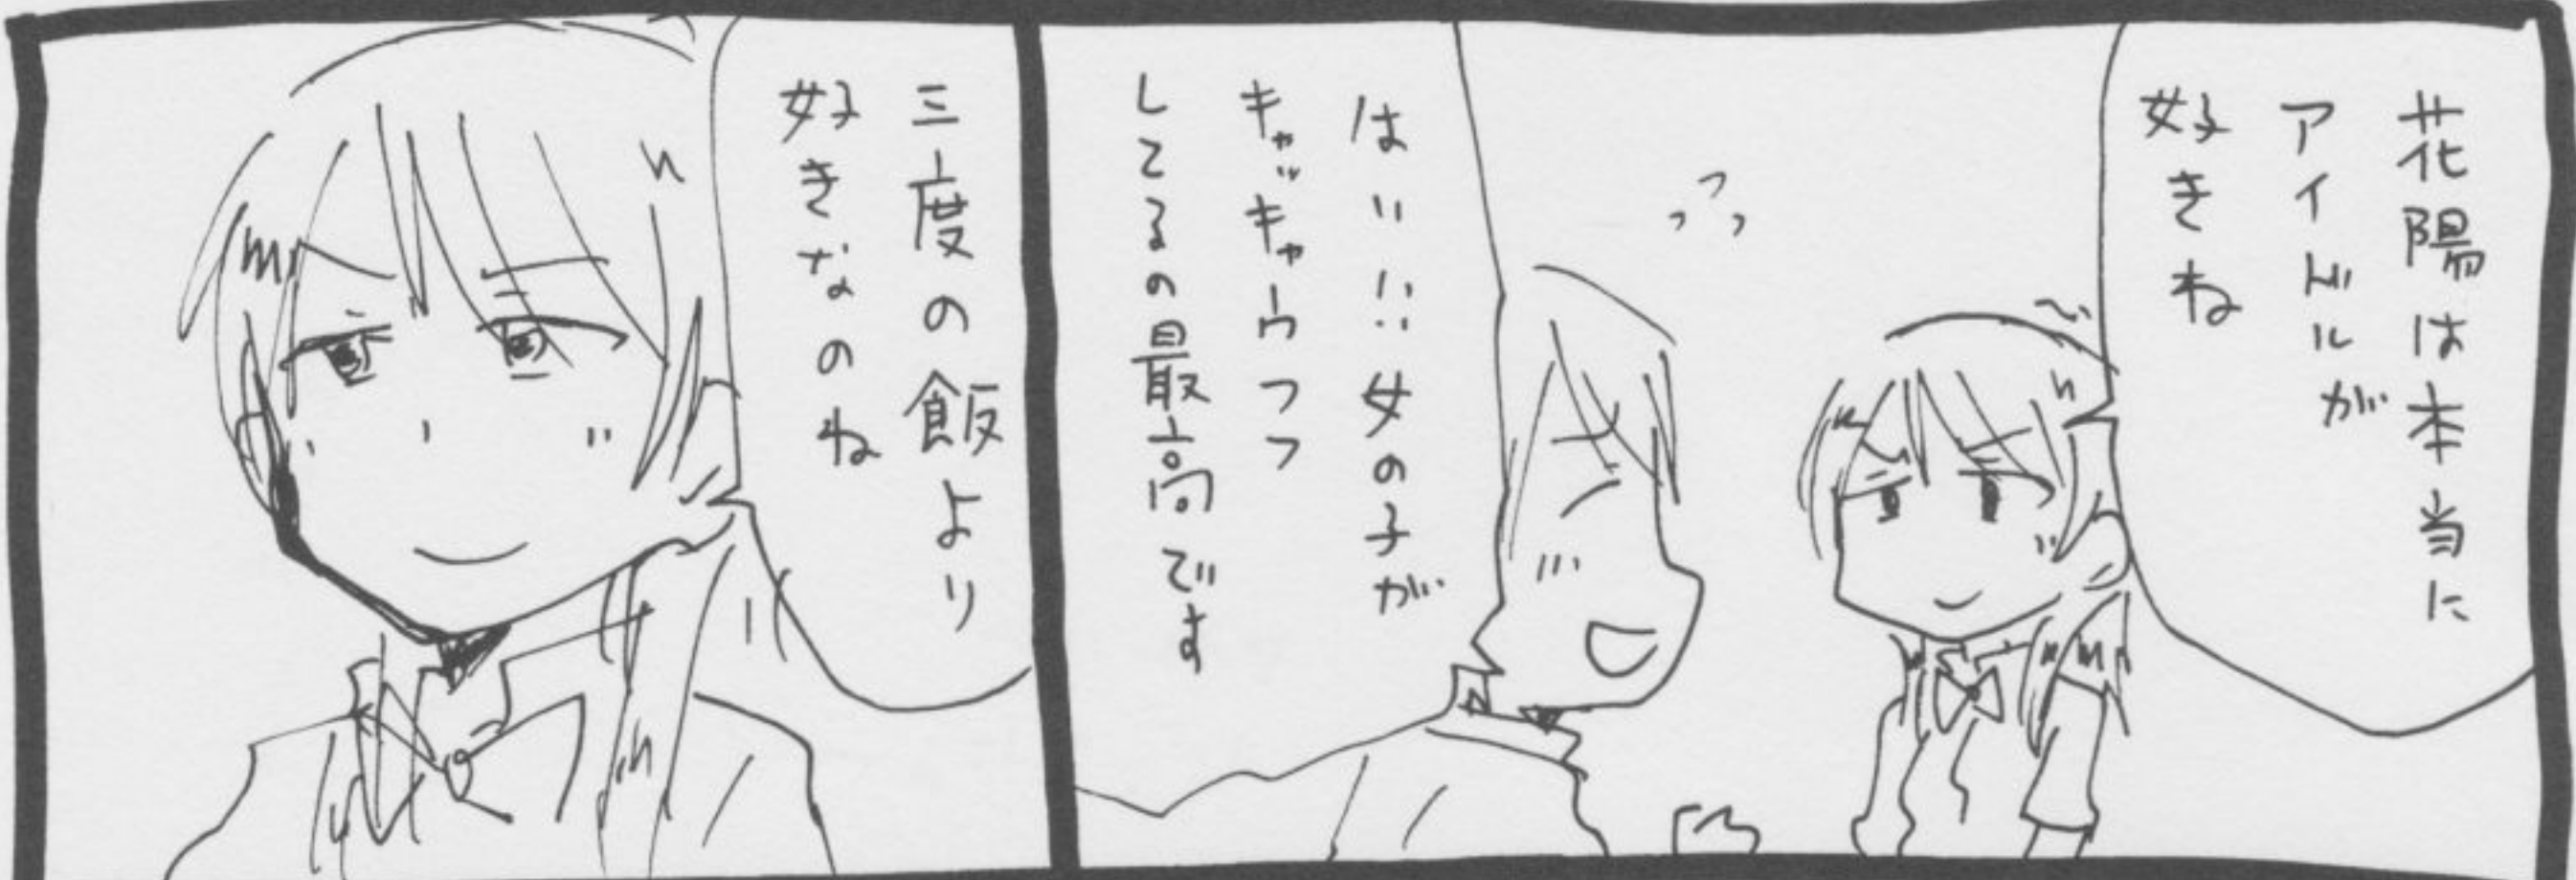 花陽は本当に
アイドルが
好きね
はい!!女の子が
キャッキャウフフ
してるの最高です
三度の飯より
好きなのね